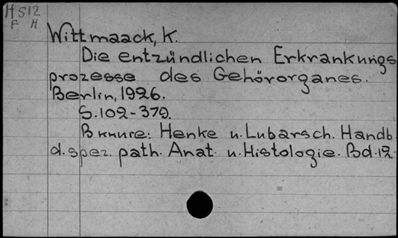 H 512
F H
Wittmaack, K.
Die entzündlichen Erkrankungs
prozesse des Gehörorganes.
Berlin, 1926.
S. 102-379.
В книге: Henke u. Lubarsch. Handb.
d. spez. path. Anat. u. Histologie. Bd. 12.